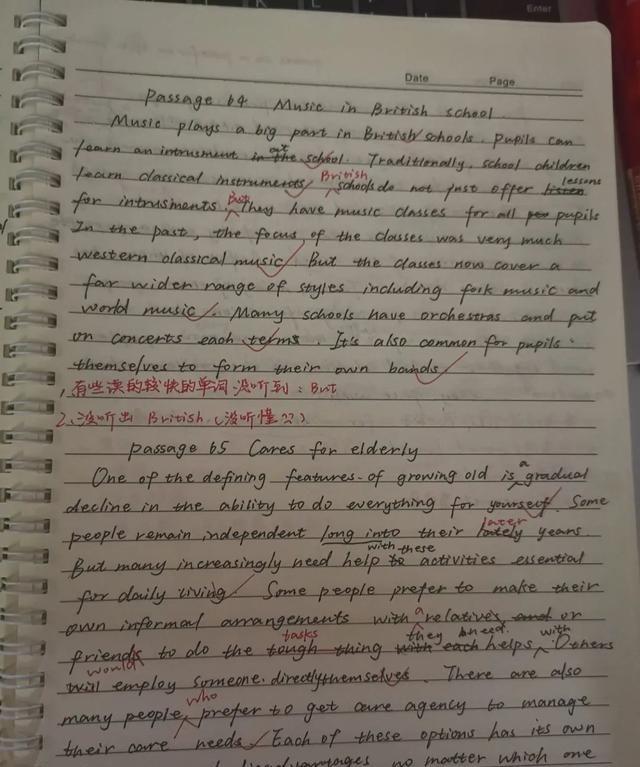 Enter
Date Page
Passage 64 Music in British school
Music plays a big part in British schools. Pupils can
learn an intrusment in the at school. Traditionally, school children
learn classical instruments. British schools do not just offer listen lessons
for intrusments. But They have music classes for all pupils
In the past, the focus of the classes was very much
western classical music. But the classes now cover a
far wider range of styles including fork music and
world music. Many schools have orchestras and put
on concerts each terms. It's also common for pupils
themselves to form their own bands.
1、有些读的较快的单词没听到：But
2、没听出 British（没听懂??）
Passage 65 Cares for elderly
One of the defining features of growing old is a gradual
decline in the ability to do everything for yourself. Some
people remain independent long into their lately later years.
But many increasingly need help to with these activities essential
for daily living. Some people prefer to make their
own informal arrangements with a relatives and or
friends to do the tough tasks thing with each they need helps with. Others
will would employ someone directly themselves. There are also
many people who prefer to get care agency to manage
their care needs. Each of these options has its own
disadvantages no matter which one